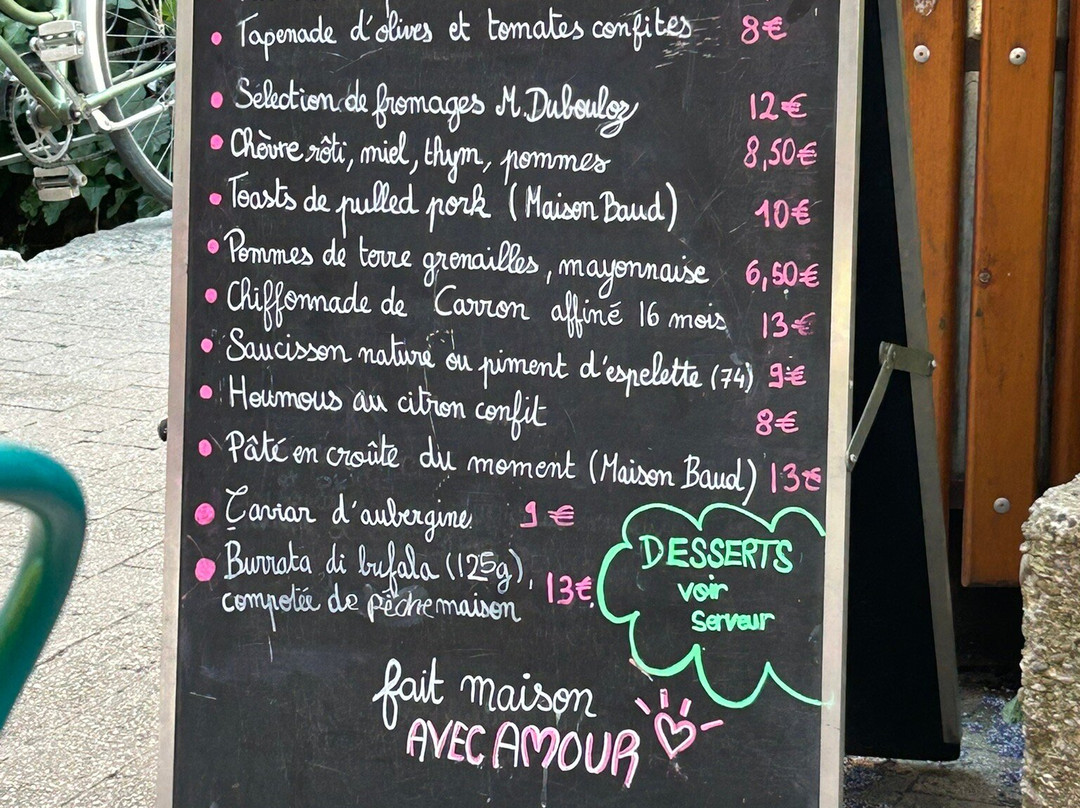 Tapenade d'olives et tomates confites 8€
Sélection de fromages M. Dubouloz 12€
Chèvre rôti, miel, thym, pommes 8,50€
Toasts de pulled pork (Maison Baud) 10€
Pommes de terre grenailles, mayonnaise 6,50€
Chiffonnade de Carron affiné 16 mois 13€
Saucisson nature ou piment d'espelette (74) 9€
Houmous au citron confit 8€
Pâté en croûte du moment (Maison Baud) 13€
Caviar d'aubergine 9€
Burrata di bufala (125g), 13€
compotée de pêche maison
DESSERTS
voir
Serveur
fait maison
AVEC AMOUR